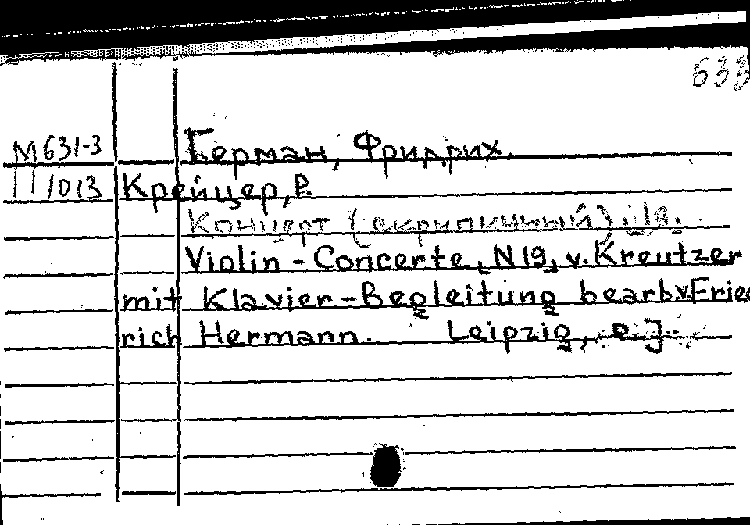 633
М631-3 Герман, Фридрих.
1013 Крейцер, Р.
Концерт (скрипичный).
Violin - Concerte, N 19, v. Kreutzer
mit Klavier-Begleitung bearb. v. Fried
rich Hermann. Leipzig,